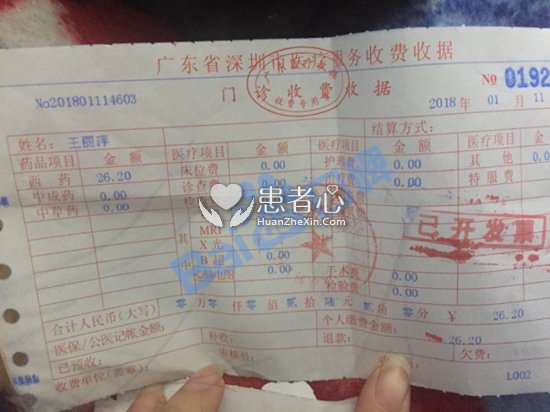 广东省深圳市医疗服务收费收据
门诊收费收据
收费专用章
No201801114603
NO 0192
2018年 01月 11
姓名: 王丽萍
结算方式:
药品项目 金额 医疗项目 金额 医疗项目 金额 医疗项目 金额
西药 26.20 床位费 0.00 护理费 0.00 其他 0.00
中成药 0.00 诊查费 0.00 治疗费 特服费
中草药 0.00 0.00
其中
MRI
X光
B超 0.00
心脑电图 0.00 手术费 0.00
检验费 0.00
已开发票
患者心
HuanZheXin.Com
合计人民币(大写) 零万零仟零佰贰拾陆元贰角零分 ¥ 26.20
医保/公医记帐金额: 个人缴费金额: 26.20
已预收: 补收: 退款: 欠费:
收费单位(盖章): 审核员: L002